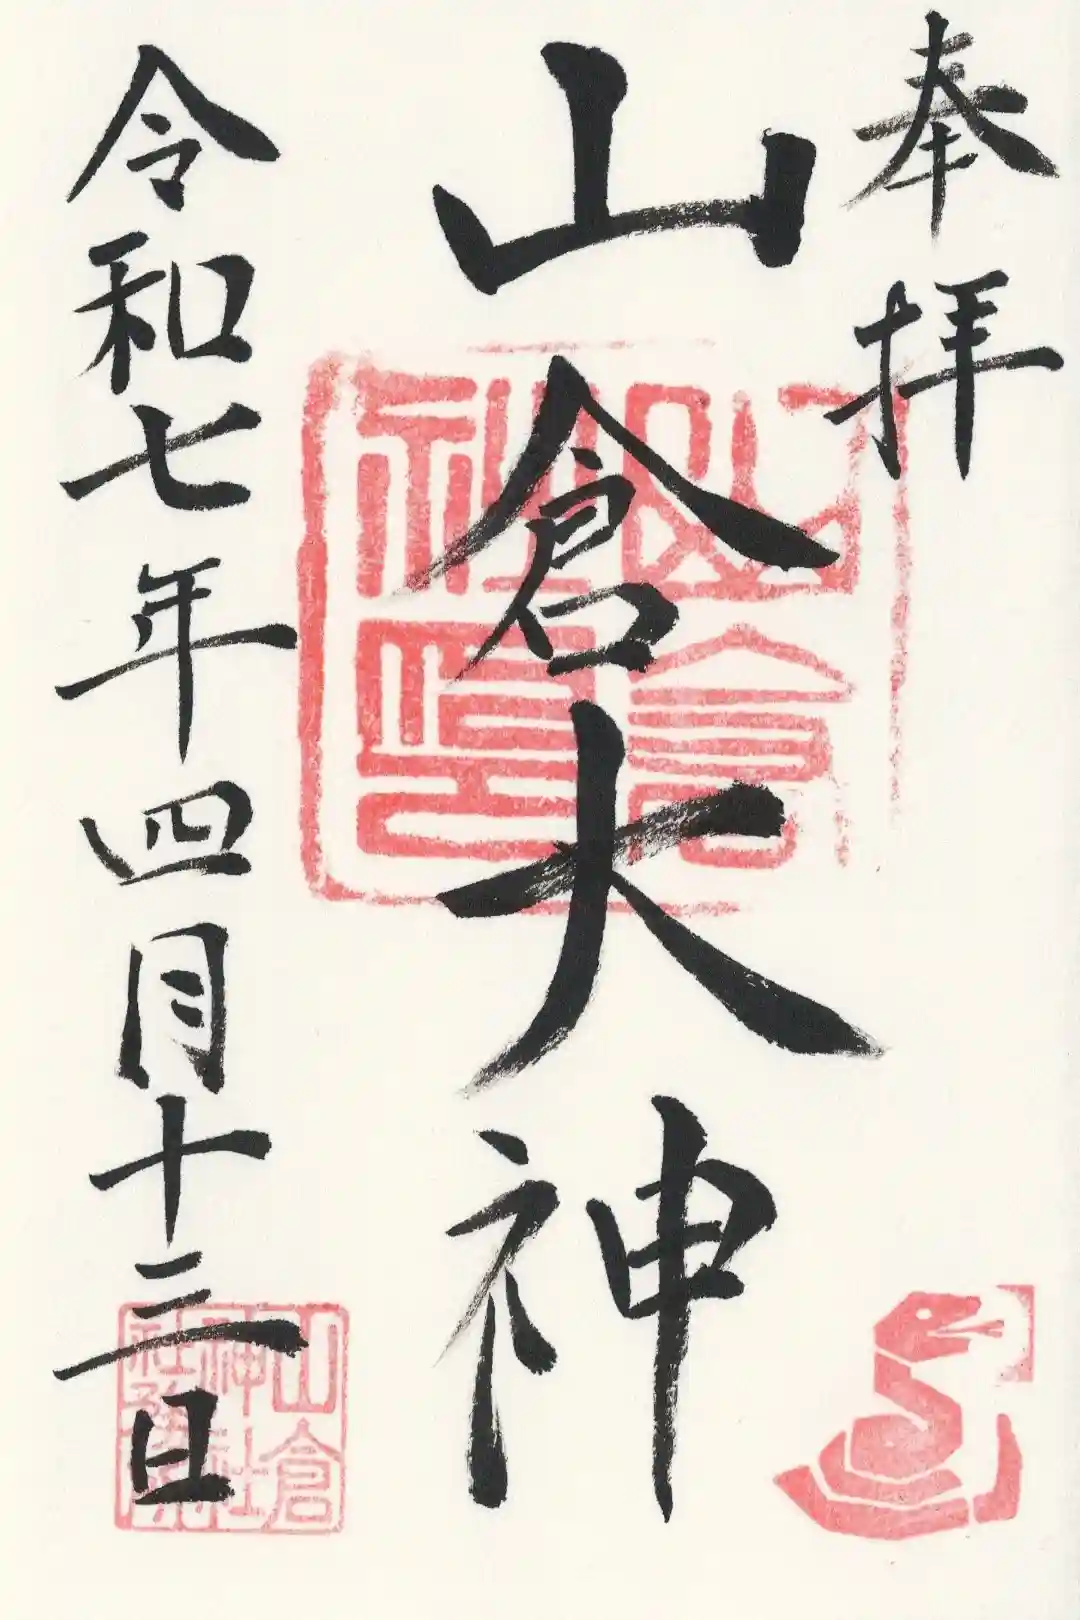 奉拝
山倉大神
令和七年四月十三日
山倉
神社
社務所